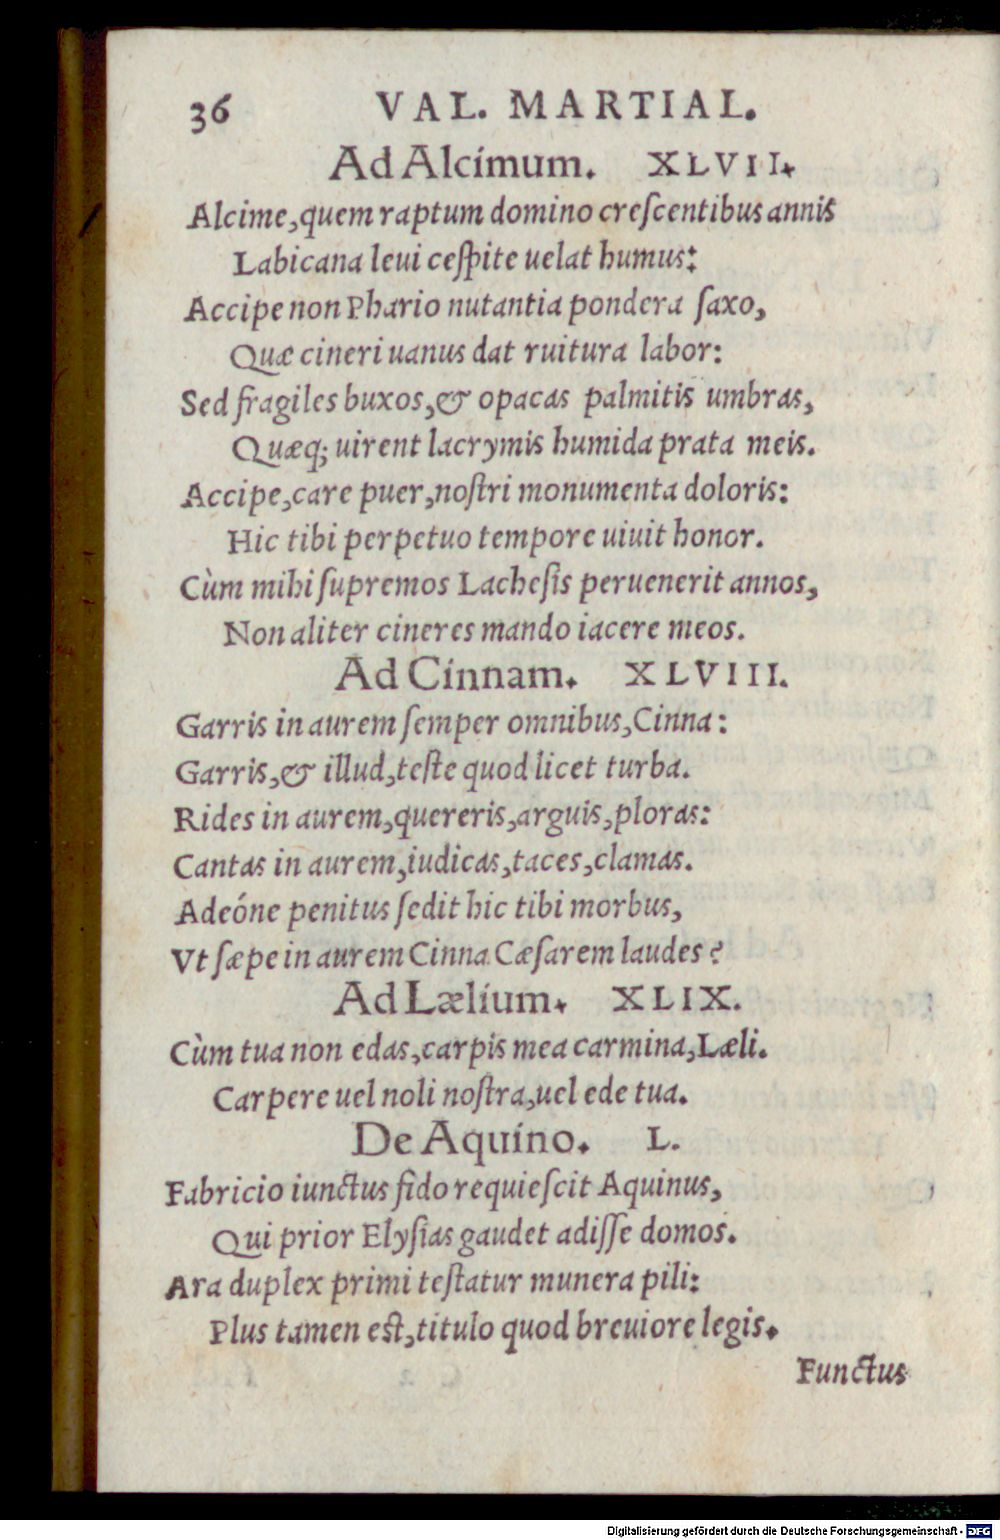 36 VAL. MARTIAL.
Ad Alcímum. XLVII.
Alcime, quem raptum domino creſcentibus annis
Labicana leui ceſpite uelat humus:
Accipe non Phario nutantia pondera ſaxo,
Quæ cineri uanus dat ruitura labor:
Sed fragiles buxos, & opacas palmitis umbras,
Quæq; uirent lacrymis humida prata meis.
Accipe, care puer, noſtri monumenta doloris:
Hic tibi perpetuo tempore uiuit honor.
Cùm mihi ſupremos Lacheſis peruenerit annos,
Non aliter cineres mando iacere meos.
Ad Cínnam. XLVIII.
Garris in aurem ſemper omnibus, Cinna:
Garris, & illud, teſte quod licet turba.
Rides in aurem, quereris, arguis, ploras:
Cantas in aurem, iudicas, taces, clamas.
Adeóne penitus ſedit hic tibi morbus,
Vt ſæpe in aurem Cinna Cæſarem laudes?
Ad Lælíum. XLIX.
Cùm tua non edas, carpis mea carmina, Læli.
Carpere uel noli noſtra, uel ede tua.
De Aquíno. L.
Fabricio iunctus fido requieſcit Aquinus,
Qui prior Elyſias gaudet adiſſe domos.
Ara duplex primi teſtatur munera pili:
Plus tamen eſt, titulo quod breuiore legis.
Functus
Digitalisierung gefördert durch die Deutsche Forschungsgemeinschaft - DFG